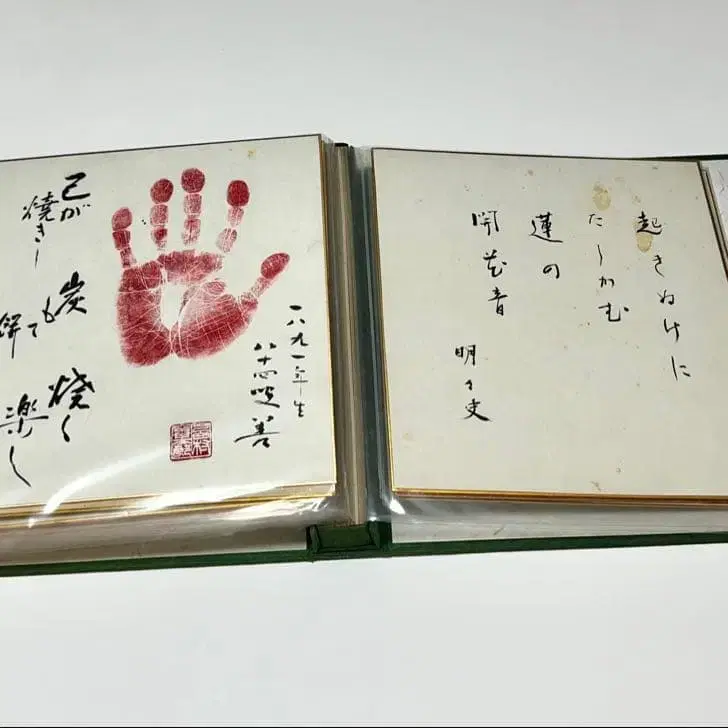 起きぬけに
たしかむ
蓮の
開花音
明々史
一八九一年生
八十四叟 善
己が
焼きし
炭
もて
餅
焼く
楽し